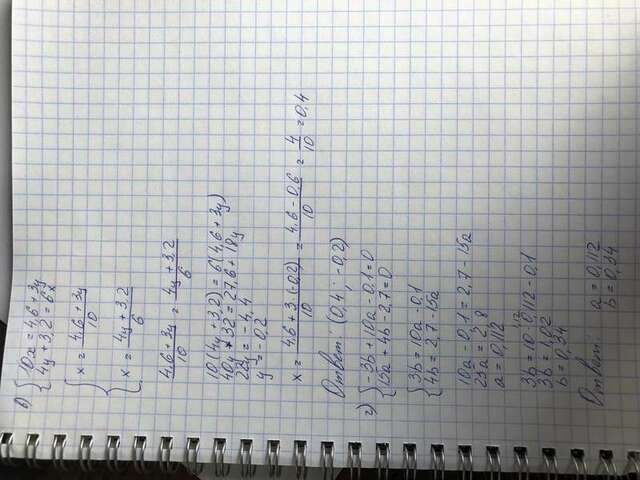 в) { 10x = 4,6 + 3y
4y + 3,2 = 6x
{ x = (4,6 + 3y)/10
x = (4y + 3,2)/6
(4,6 + 3y)/10 = (4y + 3,2)/6
10(4y + 3,2) = 6(4,6 + 3y)
40y + 32 = 27,6 + 18y
22y = -4,4
y = -0,2
x = (4,6 + 3·(-0,2))/10 = (4,6 - 0,6)/10 = 4/10 = 0,4
Ответ: (0,4 ; -0,2)
г) { -3b + 10a - 0,1 = 0
15a + 4b - 2,7 = 0
{ 3b = 10a - 0,1
4b = 2,7 - 15a
10a - 0,1 = 2,7 - 15a
25a = 2,8
a = 0,112
1,12
3b = 10·0,112 - 0,1
3b = 1,02
b = 0,34
Ответ: a = 0,112
b = 0,34